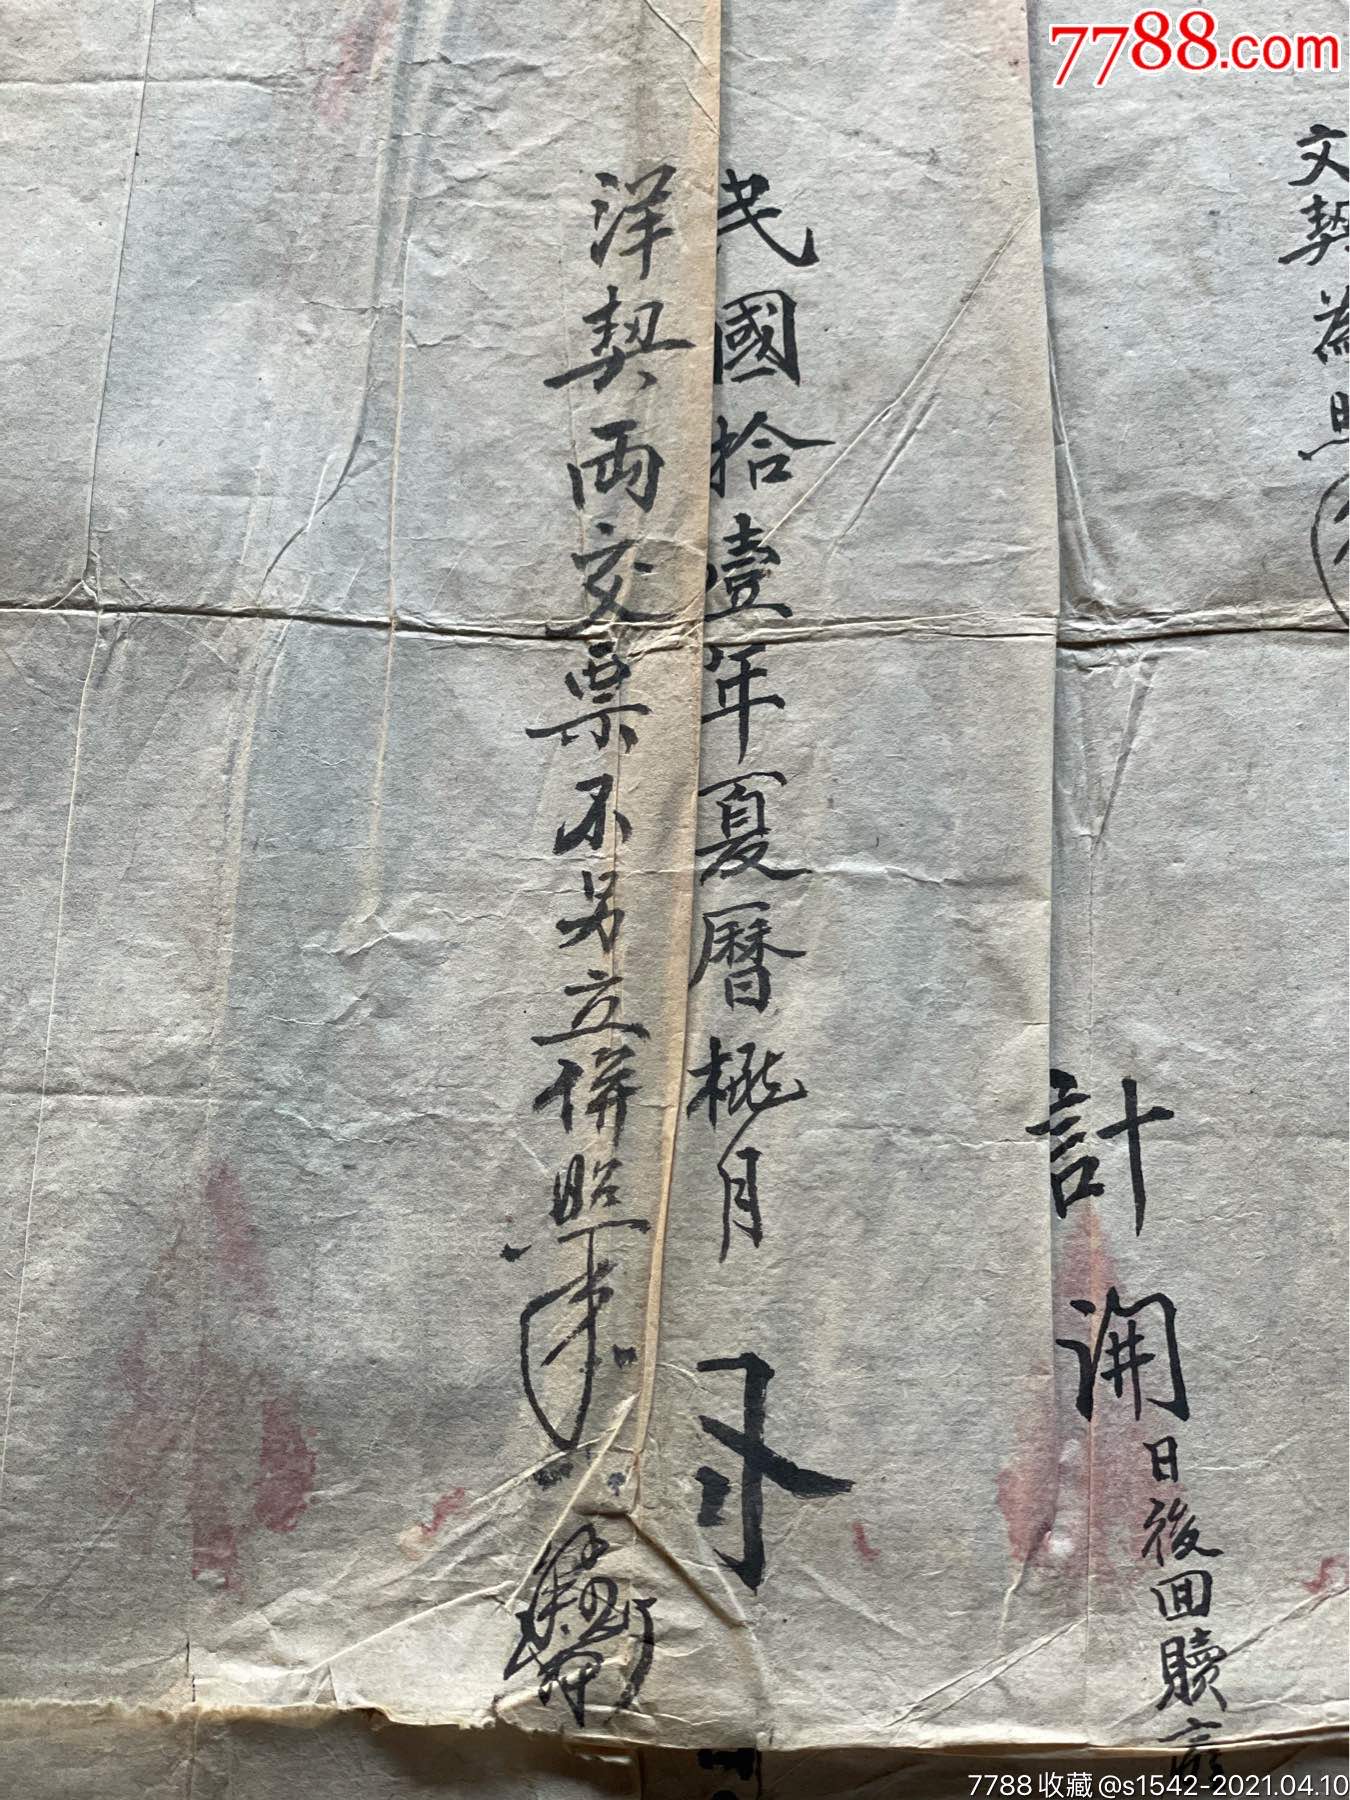 7788.com
文契為照
計開
日後回贖
民國拾壹年夏曆桃月
洋契兩交票不另立併照
7788收藏@s1542-2021.04.10